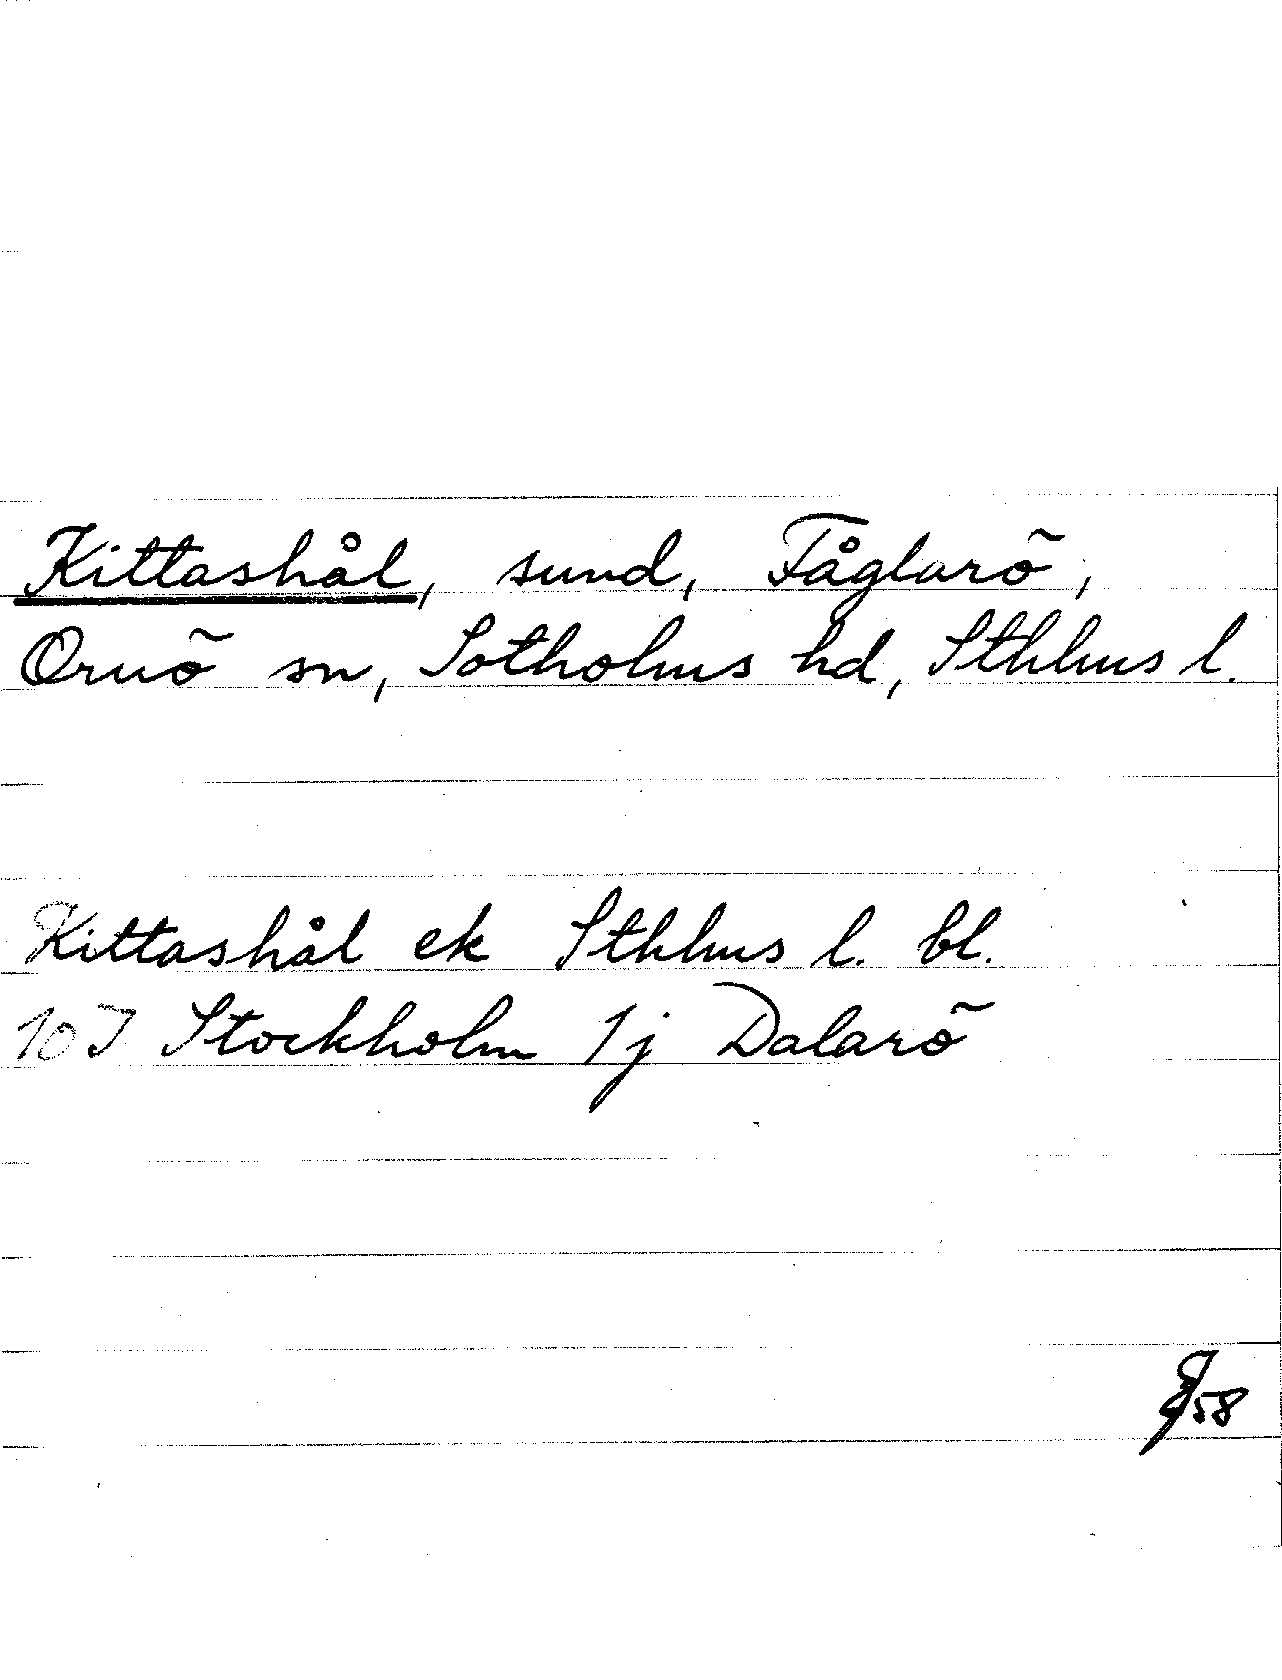 Kittashål, sund, Fåglarö,
Ornö sn, Sotholms hd, Sthlms l.
Kittashål ek Sthlms l. bl.
10 I Stockholm 1j Dalarö
58